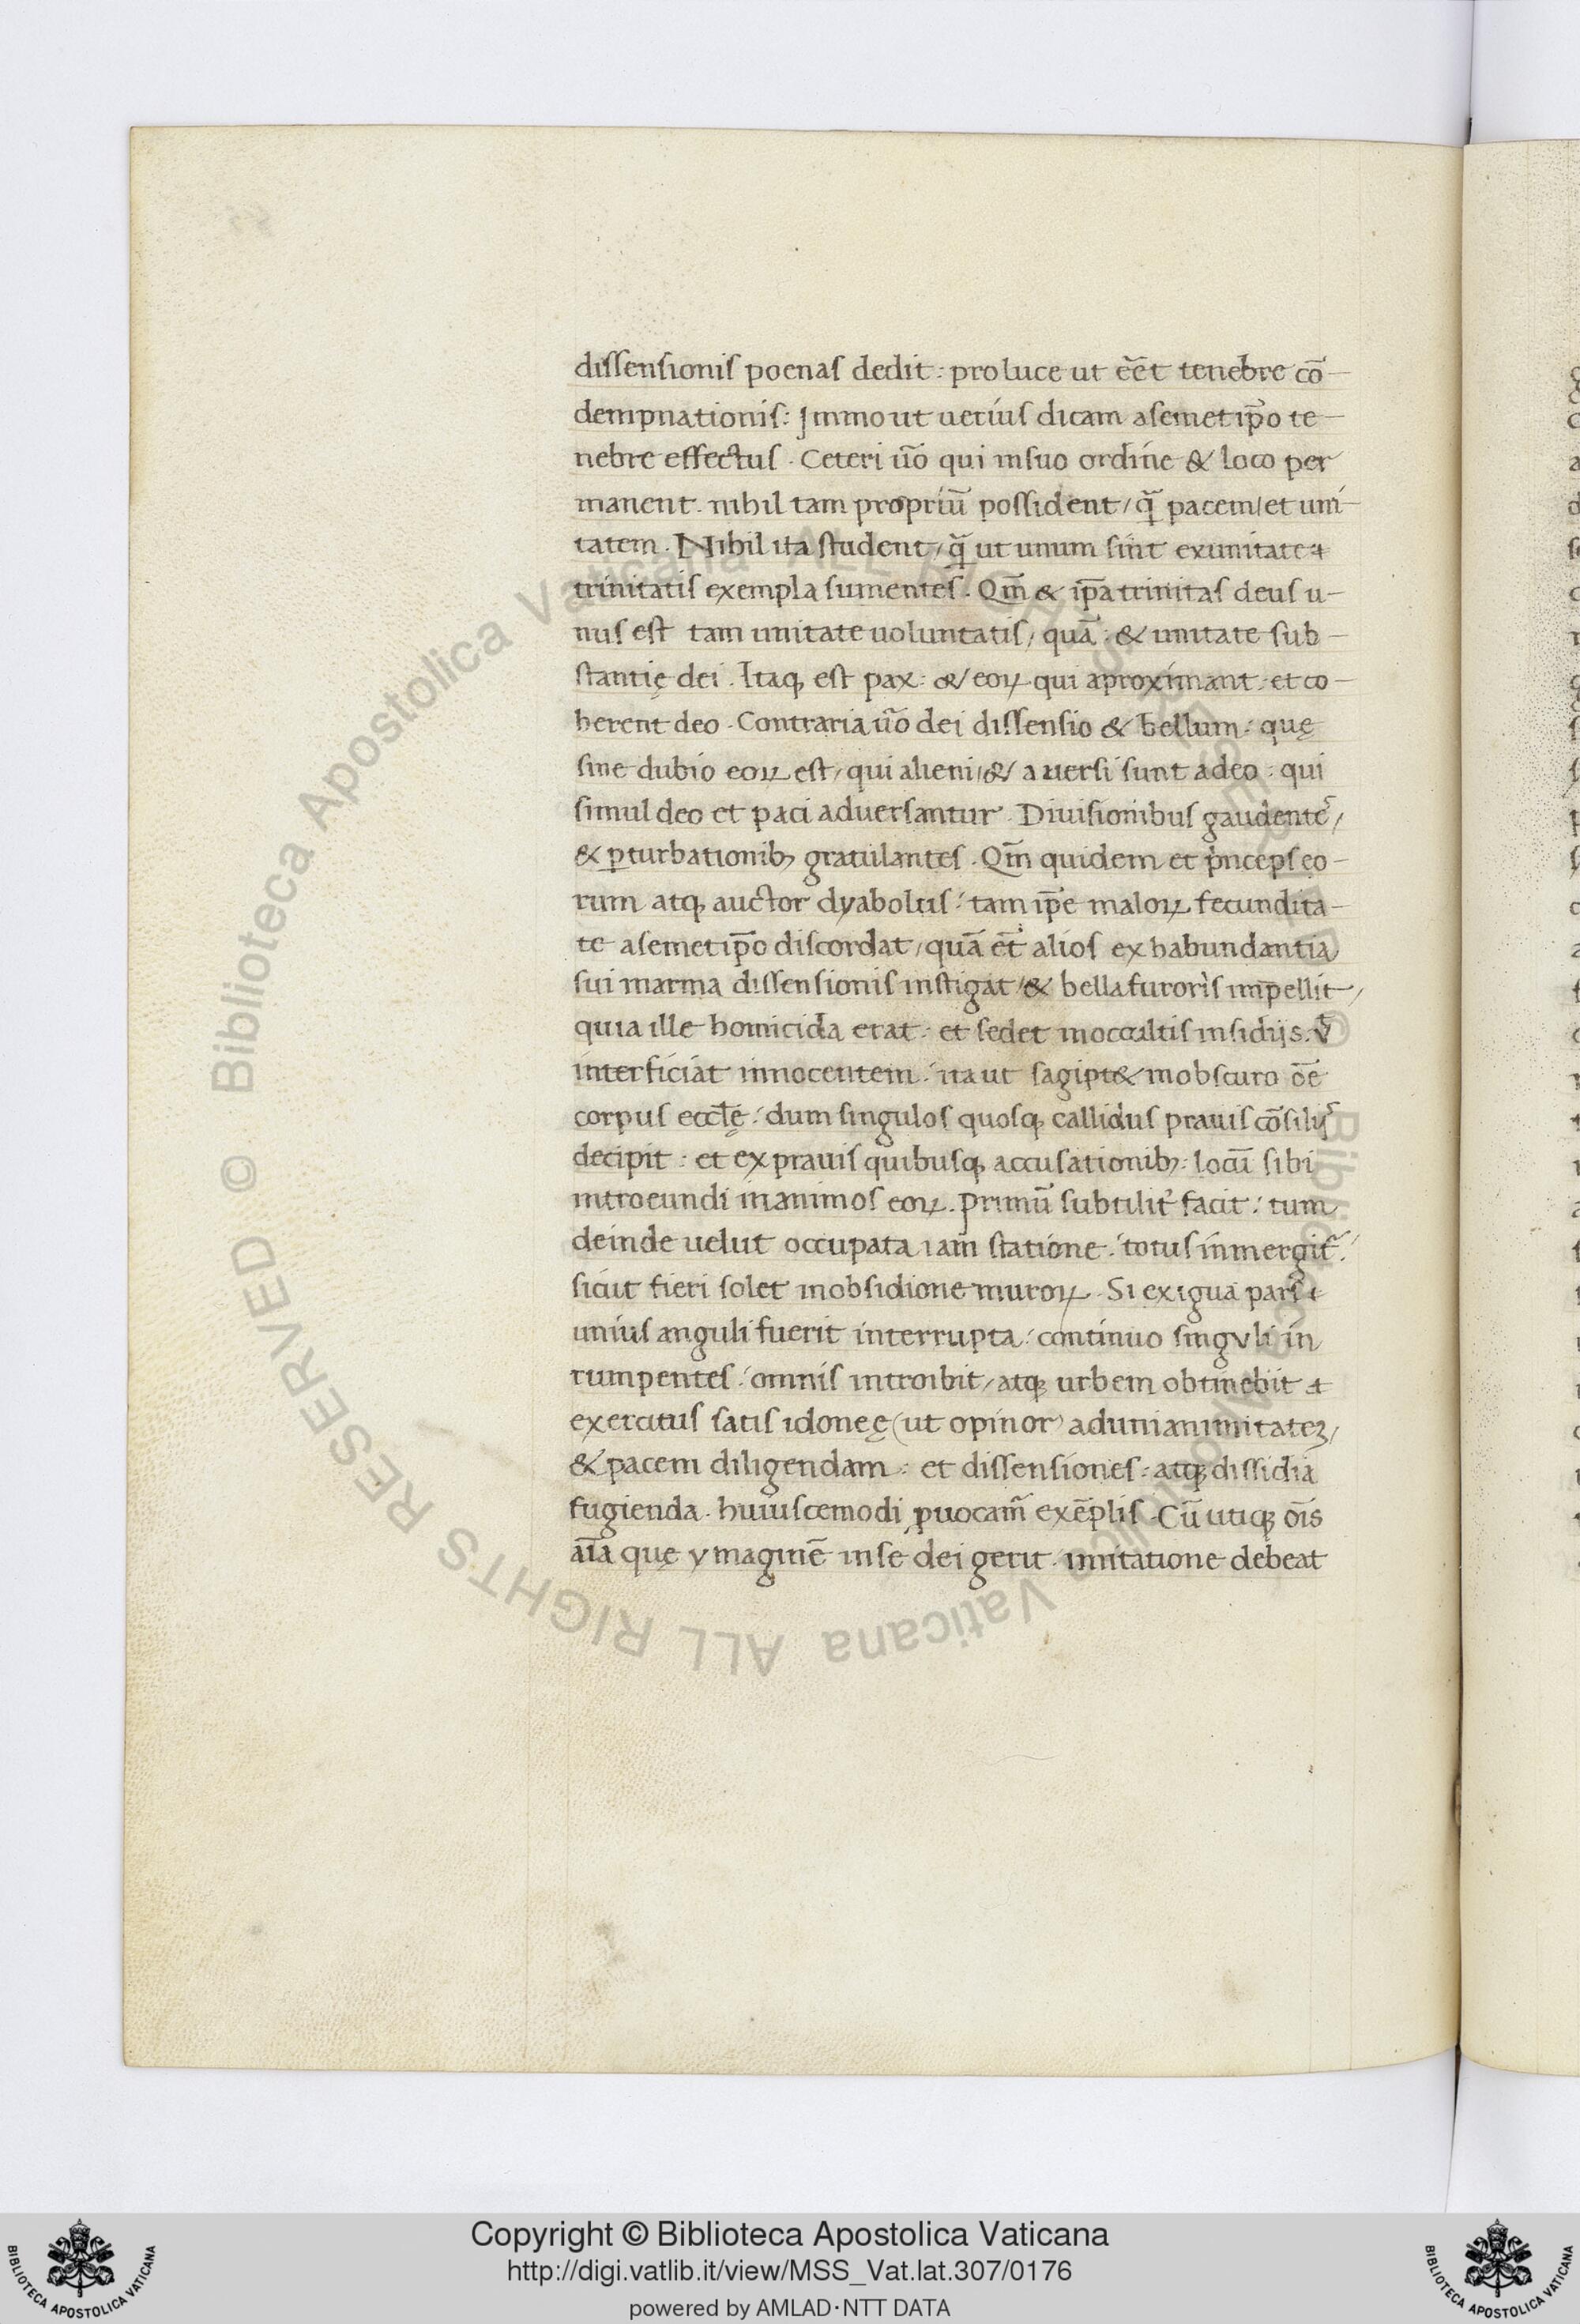 dissensionis poenas dedit: pro luce ut eēt tenebre cō-
dempnationis: Immo ut uerius dicam a semet ip̄o te-
nebre effectus. Ceteri ūo qui in suo ordine & loco per
manent. nihil tam propriū possident/ q̄ pacem/ et uni-
tatem. Nihil ita student/ q̄ ut unum sint ex unitate
trinitatis exempla sumentes. Qm̄ & ip̄a trinitas deus u-
nus est tam unitate uoluntatis/ quā: & unitate sub-
stantię dei. Itaq; est pax: & eoꝝ qui aproximant: et co-
herent deo. Contraria ūo dei dissensio & bellum: quę
sine dubio eoꝝ est/ qui alieni/ & auersi sunt a deo: qui
simul deo et paci aduersantur. Diuisionibus gaudente᷒/
& ꝑturbationib; gratulantes. Qm̄ quidem et pͥnceps eo-
rum atq; auctor dyabolus: tam ip̄e maloꝝ fecundita-
te a semet ip̄o discordat/ quā et̄ alios ex habundantia
sui in arma dissensionis instigat/ & bella furoris imp̄ellit/
quia ille homicida erat: et sedet in occultis insidijs. v̄
interficiat innocentem: ita ut sagipt& in obscuro ōē
corpus eccl̄ę: dum singulos quosq; callidus prauis cōsilij᷒
decipit: et ex prauis quibusq; accusationib;: locū sibi
introeundi in animos eoꝝ. primū subtilit̾ facit: tum
deinde uelut occupata iam statione: totus inmergit̾:
sicut fieri solet in obsidione muroꝝ. Si exigua pars
unius anguli fuerit interrupta: continuo singvli in
rumpentes: omnis introibit/ atq; urbem obtinebit
exercitus satis idoneę (ut opinor) ad unianimitateꝫ/
& pacem diligendam: et dissensiones: atq; dissidia
fugienda. huiuscemodi ꝓuocam̄ exēplis. Cū utiq; ōis
aīa quę ymaginē in se dei gerit: imitatione debeat
Copyright © Biblioteca Apostolica Vaticana
http://digi.vatlib.it/view/MSS_Vat.lat.307/0176
powered by AMLAD·NTT DATA